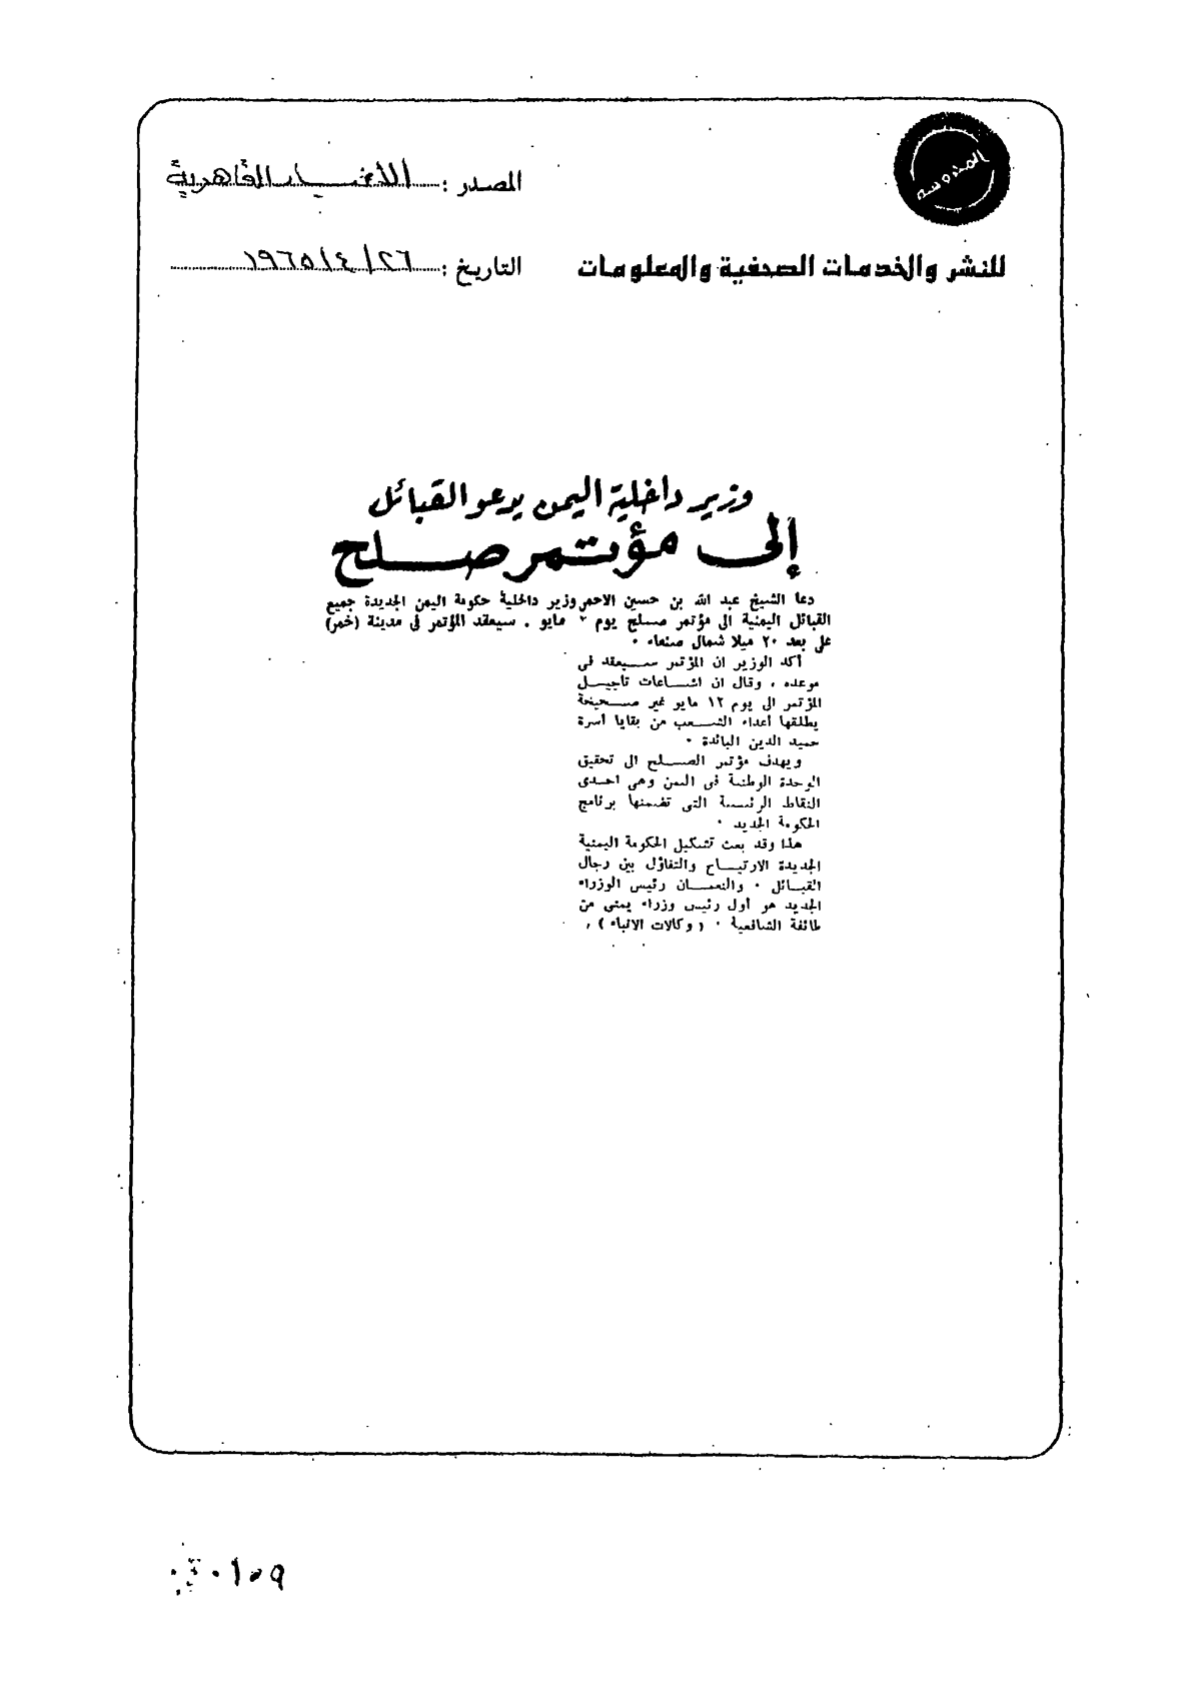 المدوسه
المصدر : الأخبار القاهرية
للنشر والخدمات الصحفية والمعلومات
التاريخ : ٢٦/٤/١٩٦٥
وزير داخلية اليمن يدعو القبائل
إلى مؤتمر صلح
دعا الشيخ عبد الله بن حسين الاحمر وزير داخلية حكومة اليمن الجديدة جميع
القبائل اليمنية الى مؤتمر صلح يوم مايو . سيعقد المؤتمر فى مدينة (خمر)
على بعد ٢٠ ميلا شمال صنعاء .
أكد الوزير ان المؤتمر سيعقد فى
موعده ، وقال ان اشاعات تأجيل
المؤتمر الى يوم ١٢ مايو غير صحيحة
يطلقها أعداء الشعب من بقايا أسرة
حميد الدين البائدة .
ويهدف مؤتمر الصلح الى تحقيق
الوحدة الوطنية فى اليمن وهى احدى
النقاط الرئيسية التى تضمنها برنامج
الحكومة الجديد .
هذا وقد بعث تشكيل الحكومة اليمنية
الجديدة الارتياح والتفاؤل بين رجال
القبائل . والنعمان رئيس الوزراء
الجديد هو أول رئيس وزراء يمنى من
طائفة الشافعية . ( وكالات الانباء ) ،